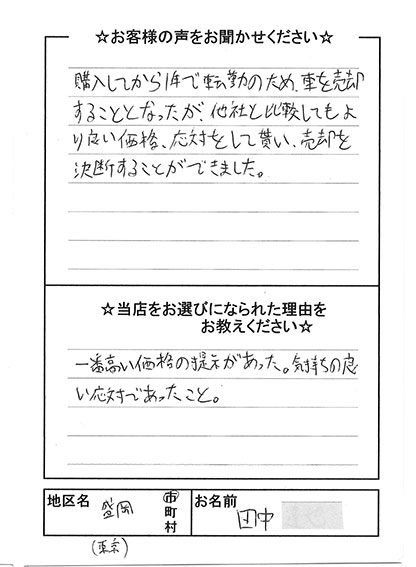 ☆お客様の声をお聞かせください☆
購入してから1年で転勤のため、車を売却
することとなったが、他社と比較してもよ
り良い価格、応対をして貰い、売却を
決断することができました。
☆当店をお選びになられた理由を
お教えください☆
一番高い価格の提示があった。気持ちの良
い応対であったこと。
地区名 盛岡 市 町 村 お名前 田中
(東京)